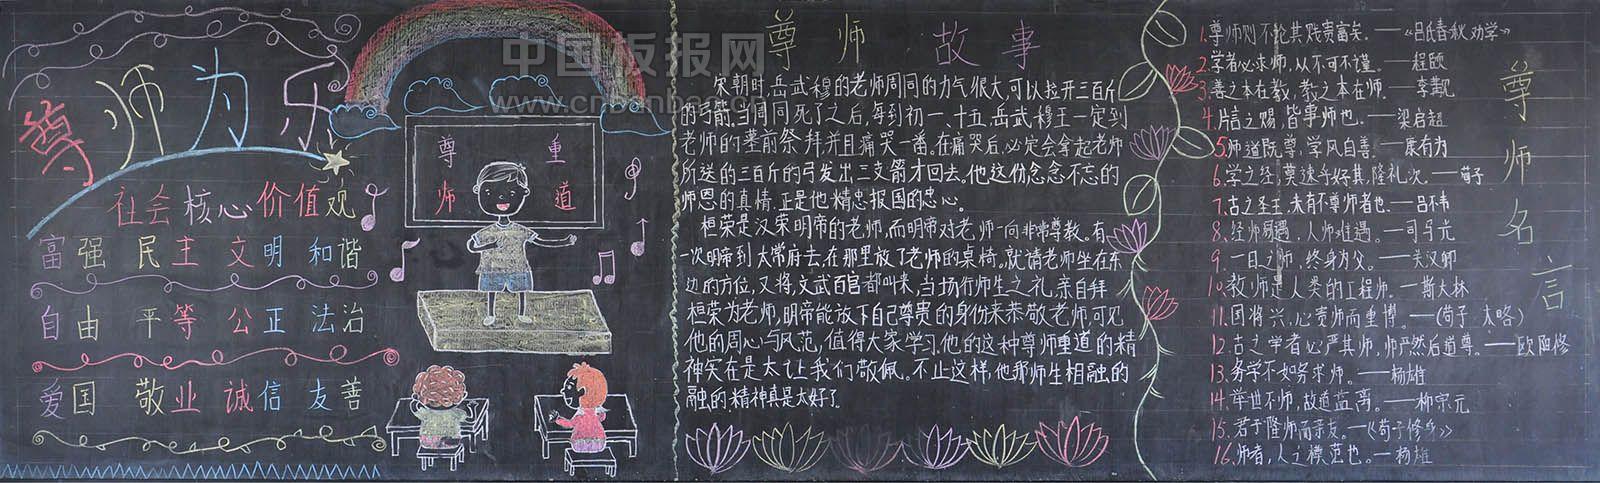 尊师为乐
社会核心价值观
富强 民主 文明 和谐
自由 平等 公正 法治
爱国 敬业 诚信 友善
中国板报网
www.cnbanbao.cn
尊 重
师 道
尊师 故事
宋朝时,岳武穆的老师周同的力气很大,可以拉开三百斤
的弓箭,当周同死了之后,每到初一、十五,岳武穆王一定到
老师的墓前祭拜并且痛哭一番。在痛哭后,必定会拿起老师
所送的三百斤的弓发出三支箭才回去。他这份念念不忘的
师恩的真情,正是他精忠报国的忠心。
桓荣是汉荣明帝的老师,而明帝对老师一向非常尊敬。有
一次明帝到太常府去,在那里放了老师的桌椅。就请老师坐在东
边的方位,又将文武百官都叫来,当场行师生之礼,亲自拜
桓荣为老师,明帝能放下自己尊贵的身份来恭敬老师可见
他的周心与风范,值得大家学习,他的这种尊师重道的精
神实在是太让我们敬佩。不止这样,他那师生相融的
融的精神真是太好了。
1.尊师则不论其贱贵富矣。——《吕氏春秋劝学》
2.学者必求师,从不可不谨。——程颐
3.善之本在教,教之本在师。——李觏
4.片言之赐,皆事师也。——梁启超
5.师道既尊,学风自善。——康有为
6.学之经,莫速乎好其,隆礼次。——荀子
7.古之圣王,未有不尊师者也。——吕不韦
8.经师易遇,人师难遇。——司马光
9.一日之师,终身为父。——关汉卿
10.教师是人类的工程师。——斯大林
11.国将兴,心贵师而重博。——(荀子 大略)
12.古之学者必严其师,师严然后道尊。——欧阳修
13.务学不如务求师。——杨雄
14.举世不师,故道益离。——柳宗元
15.若于隆师而亲友。——《荀子修身》
16.师者,人之模范也。——杨雄
尊师名言